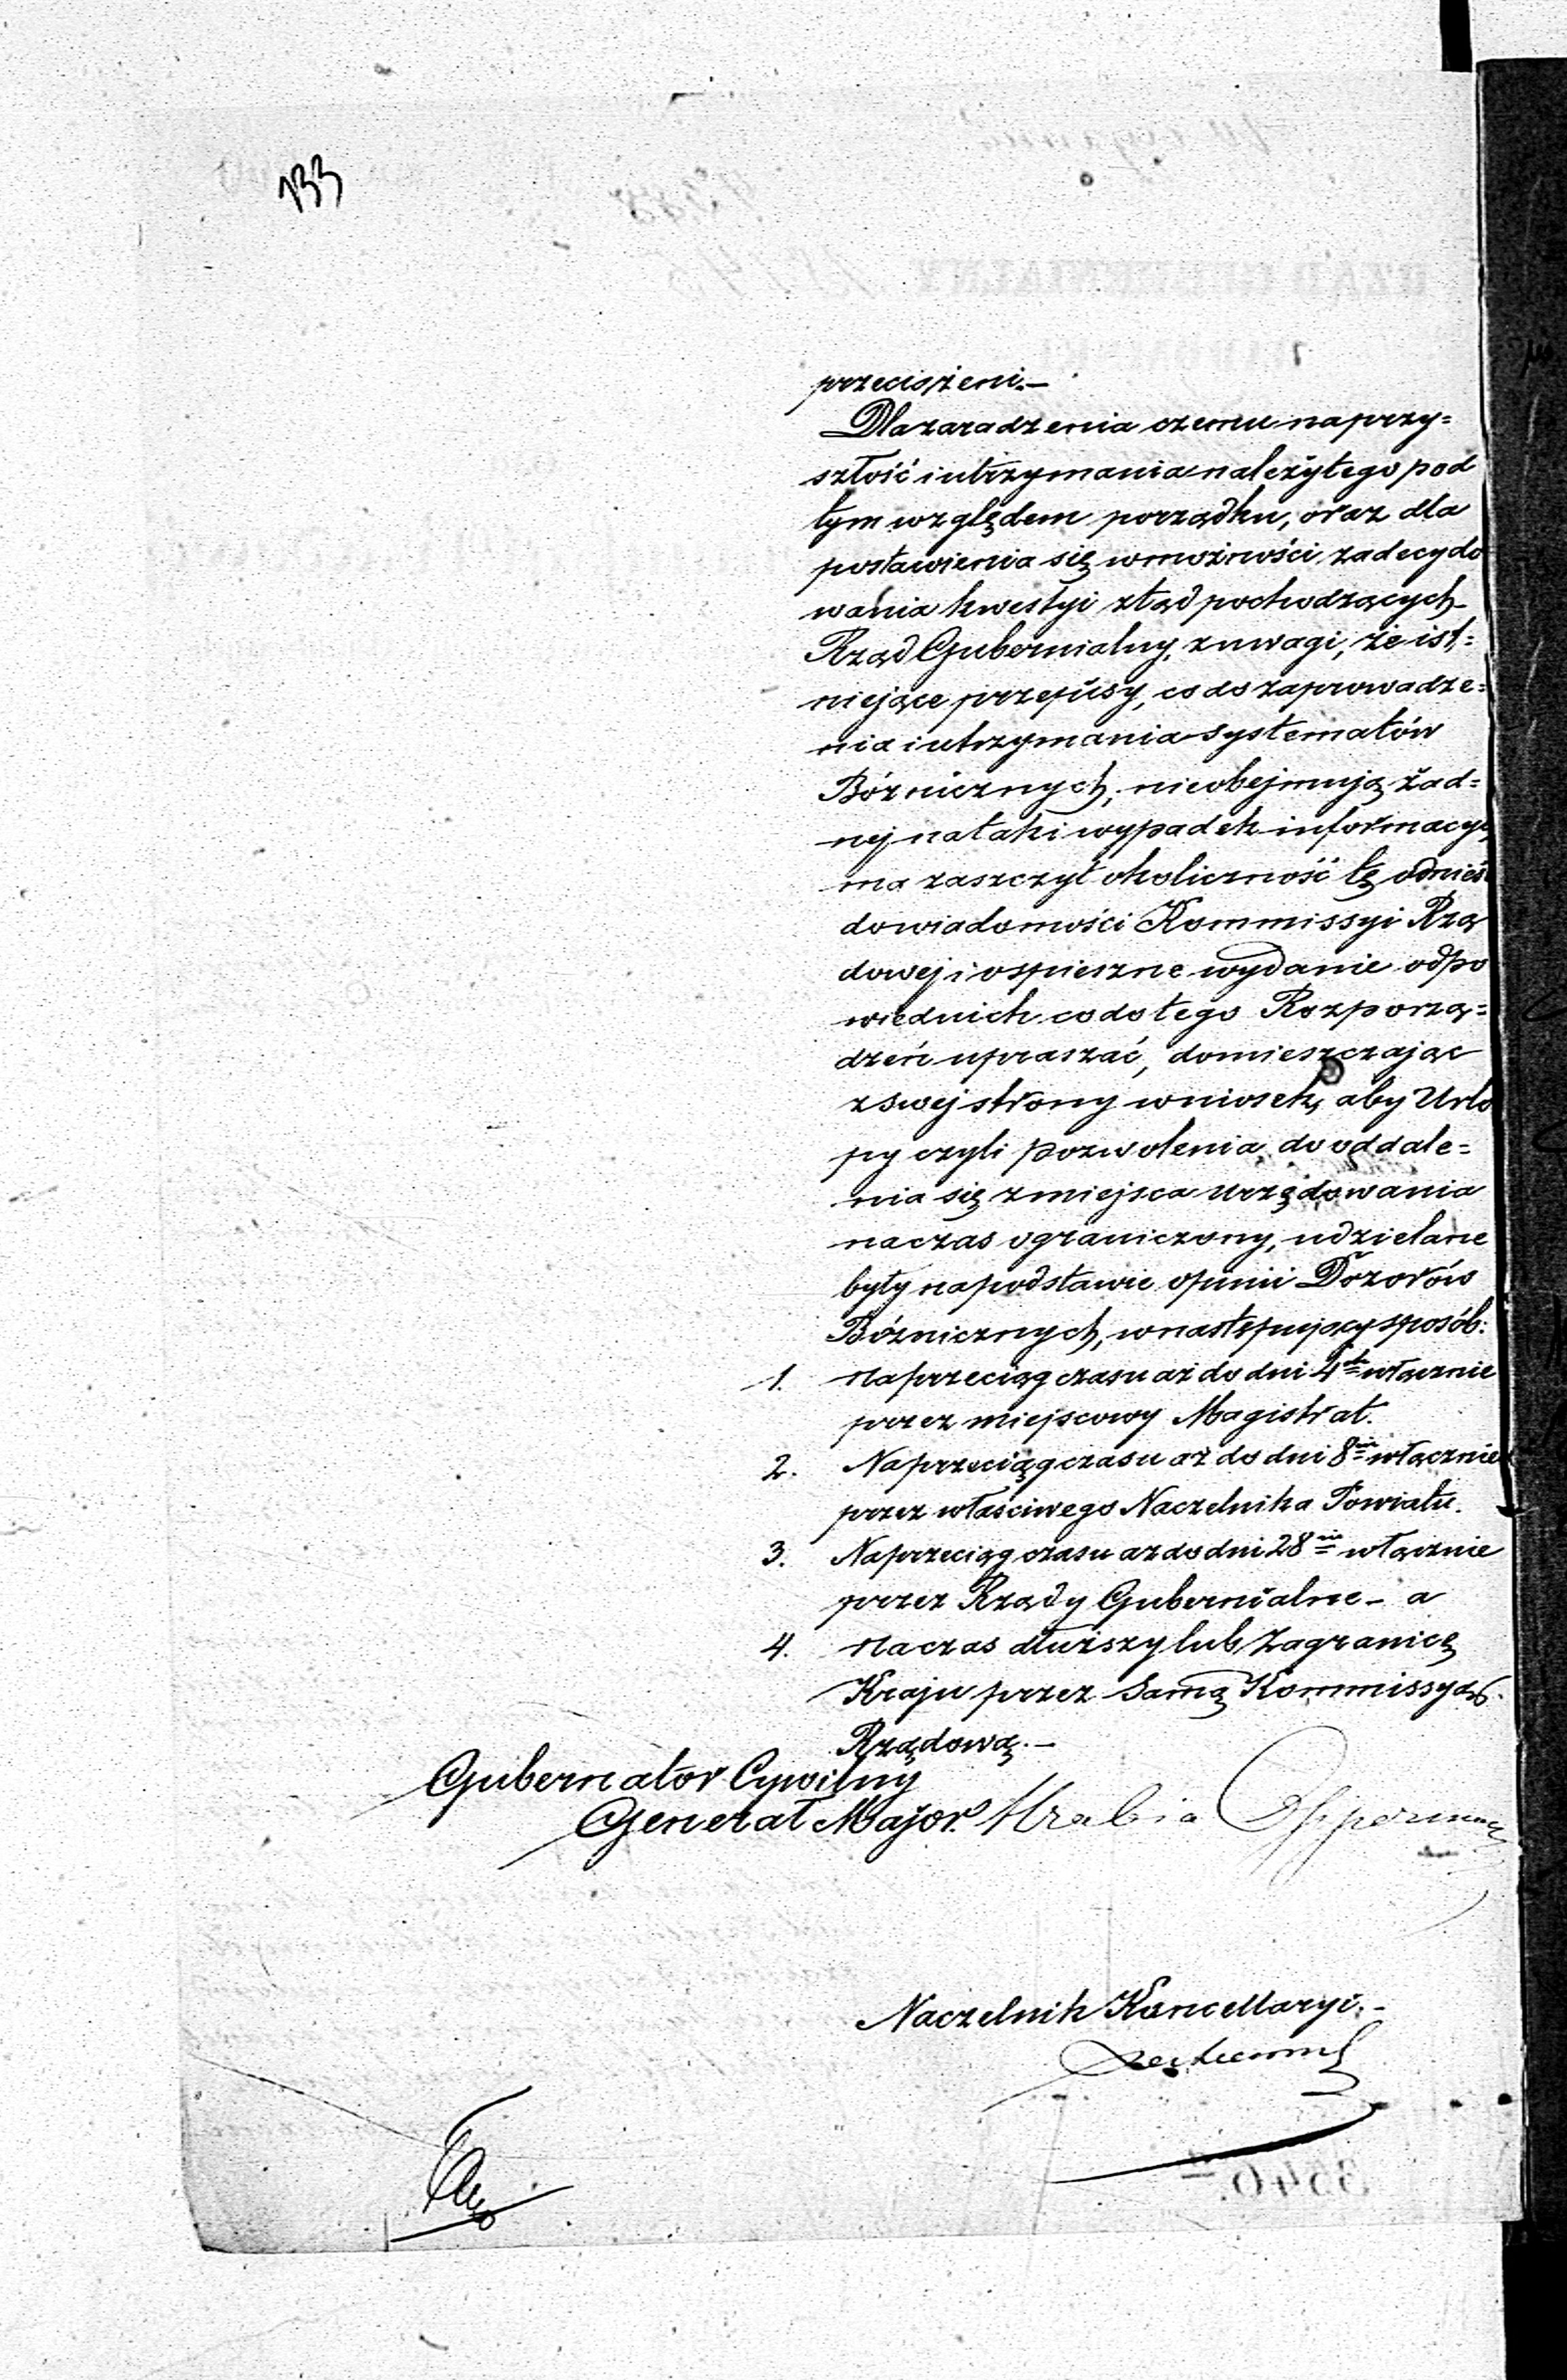 133
przeciążeni.—
Dla zaradzenia czemu na przy=
szłość i utrzymania należytego pod
tym względem porządku, oraz dla
postawienia się w możności zadecydo
wania kwestyi ztąd pochodzących
Rząd Gubernialny, z uwagi, że ist=
niejące przepisy, co do zaprowadze=
nia i utrzymania systematów
Bóżnicznych, nieobejmują żad=
nej na taki wypadek informacyi,
ma zaszczyt okoliczność tę odnieść
do wiadomości Kommissyi Rzą
dowej i o spieszne wydanie odpo
wiednich co do tego Rozporzą=
dzeń upraszać, domieszczając
z swej strony wniosek, aby Urlo
py czyli pozwolenia do oddale=
nia się z miejsca urzędowania
na czas ograniczony, udzielane
były na podstawie opinii Dozorów
Bóżnicznych, w następujący sposób:
1. Na przeciąg czasu aż do dni 4ch włącznie
przez miejscowy Magistrat.
2. Na przeciąg czasu aż do dni 8miu włącznie
przez właściwego Naczelnika Powiatu.
3. Na przeciąg czasu aż do dni 28miu włącznie
przez Rządy Gubernialne — a
4. Na czas dłuższy lub Zagranicę
Kraju przez Samą Kommissyą
Rządową.—
Gubernator Cywilny
Generał Major. Hrabia Opperman
Naczelnik Kancellaryi.—
3540.